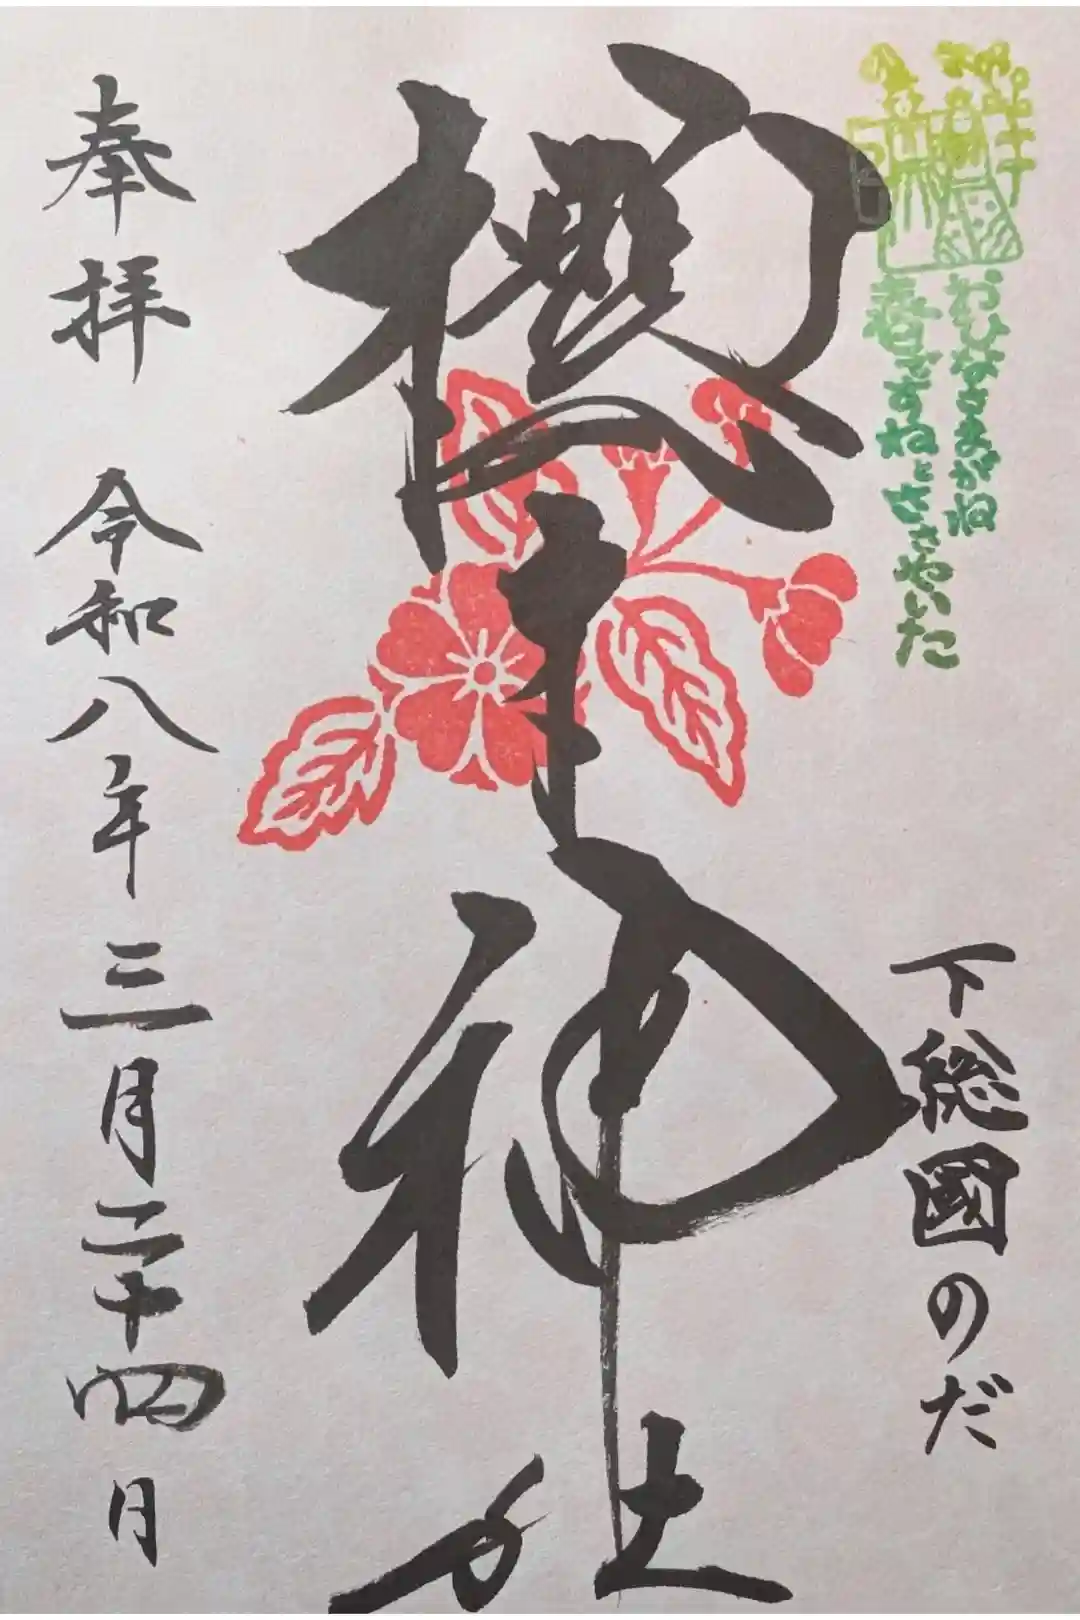 おひなさまがね
春ですねとささやいた
下総國のだ
櫻木神社
奉拝 令和八年三月二十四日